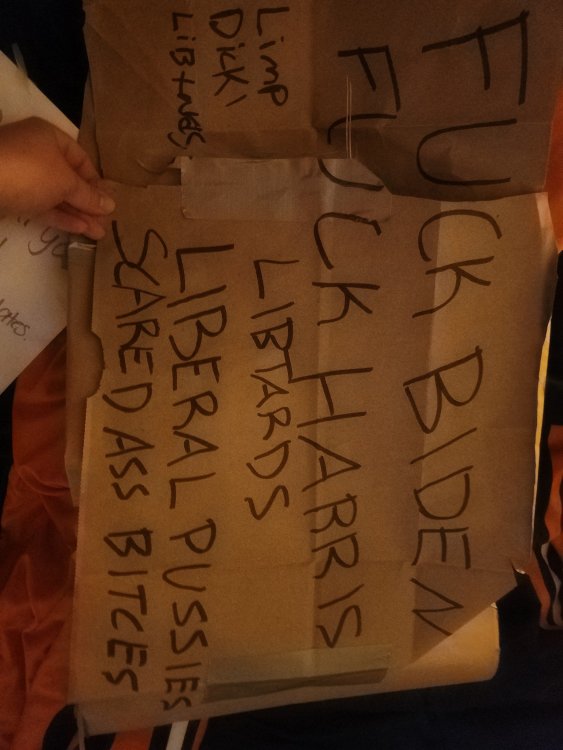 FUCK BIDEN
FUCK HARRIS
Limp
LIBTARDS
LIBERAL PUSSIES
SCARED ASS BITCES